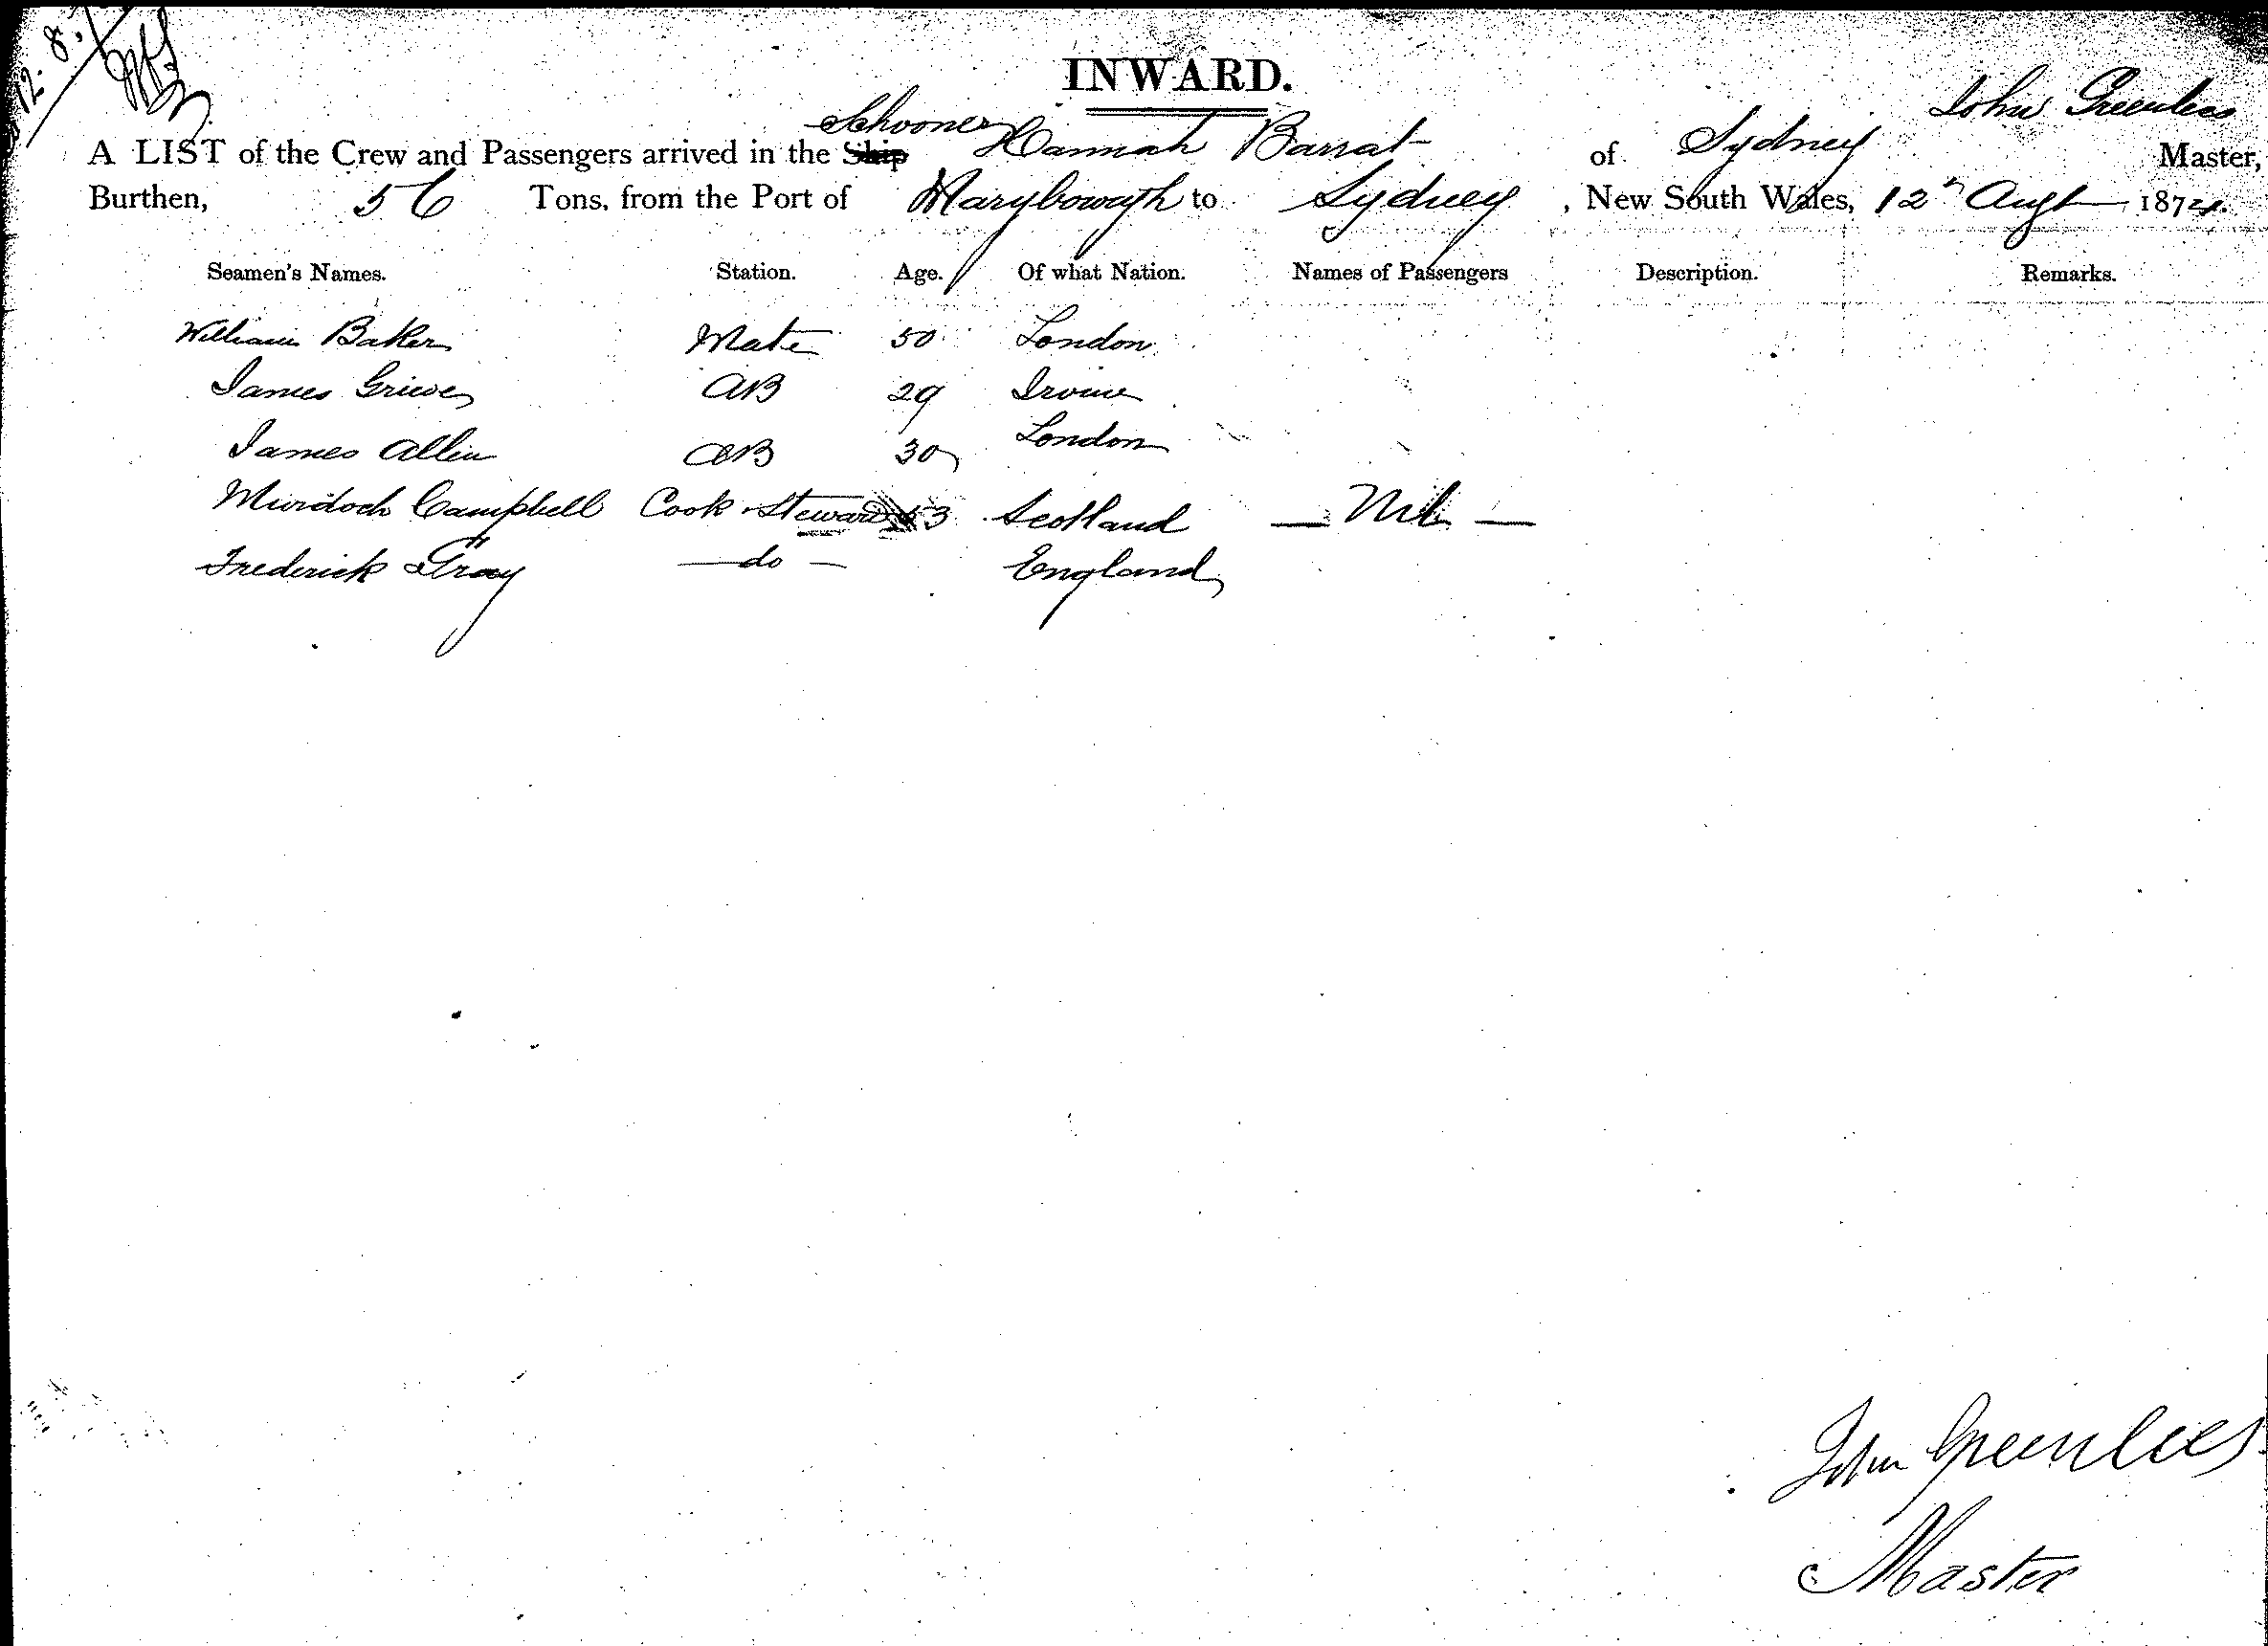 12. 8.
INWARD.
Schooner John Greenlees
A LIST of the Crew and Passengers arrived in the Ship Hannah Barrat of Sydney Master,
Burthen, 56 Tons, from the Port of Maryborough to Sydney , New South Wales, 12th Augt 1874.
Seamen's Names. Station. Age. Of what Nation. Names of Passengers Description. Remarks.
William Baker Mate 50 London
James Grieve AB 29 Irvine
James Allin AB 30 London
Murdoch Campbell Cook Steward 3 Scotland — Nil —
Frederick Gray — do — England
John Greenlees
Master